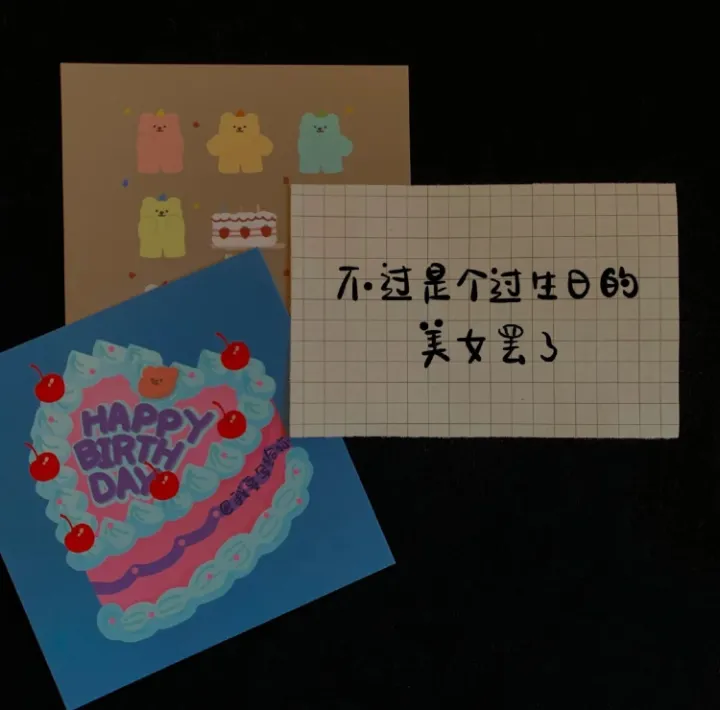 不过是个过生日的
美女罢了
HAPPY
BIRTH
DAY